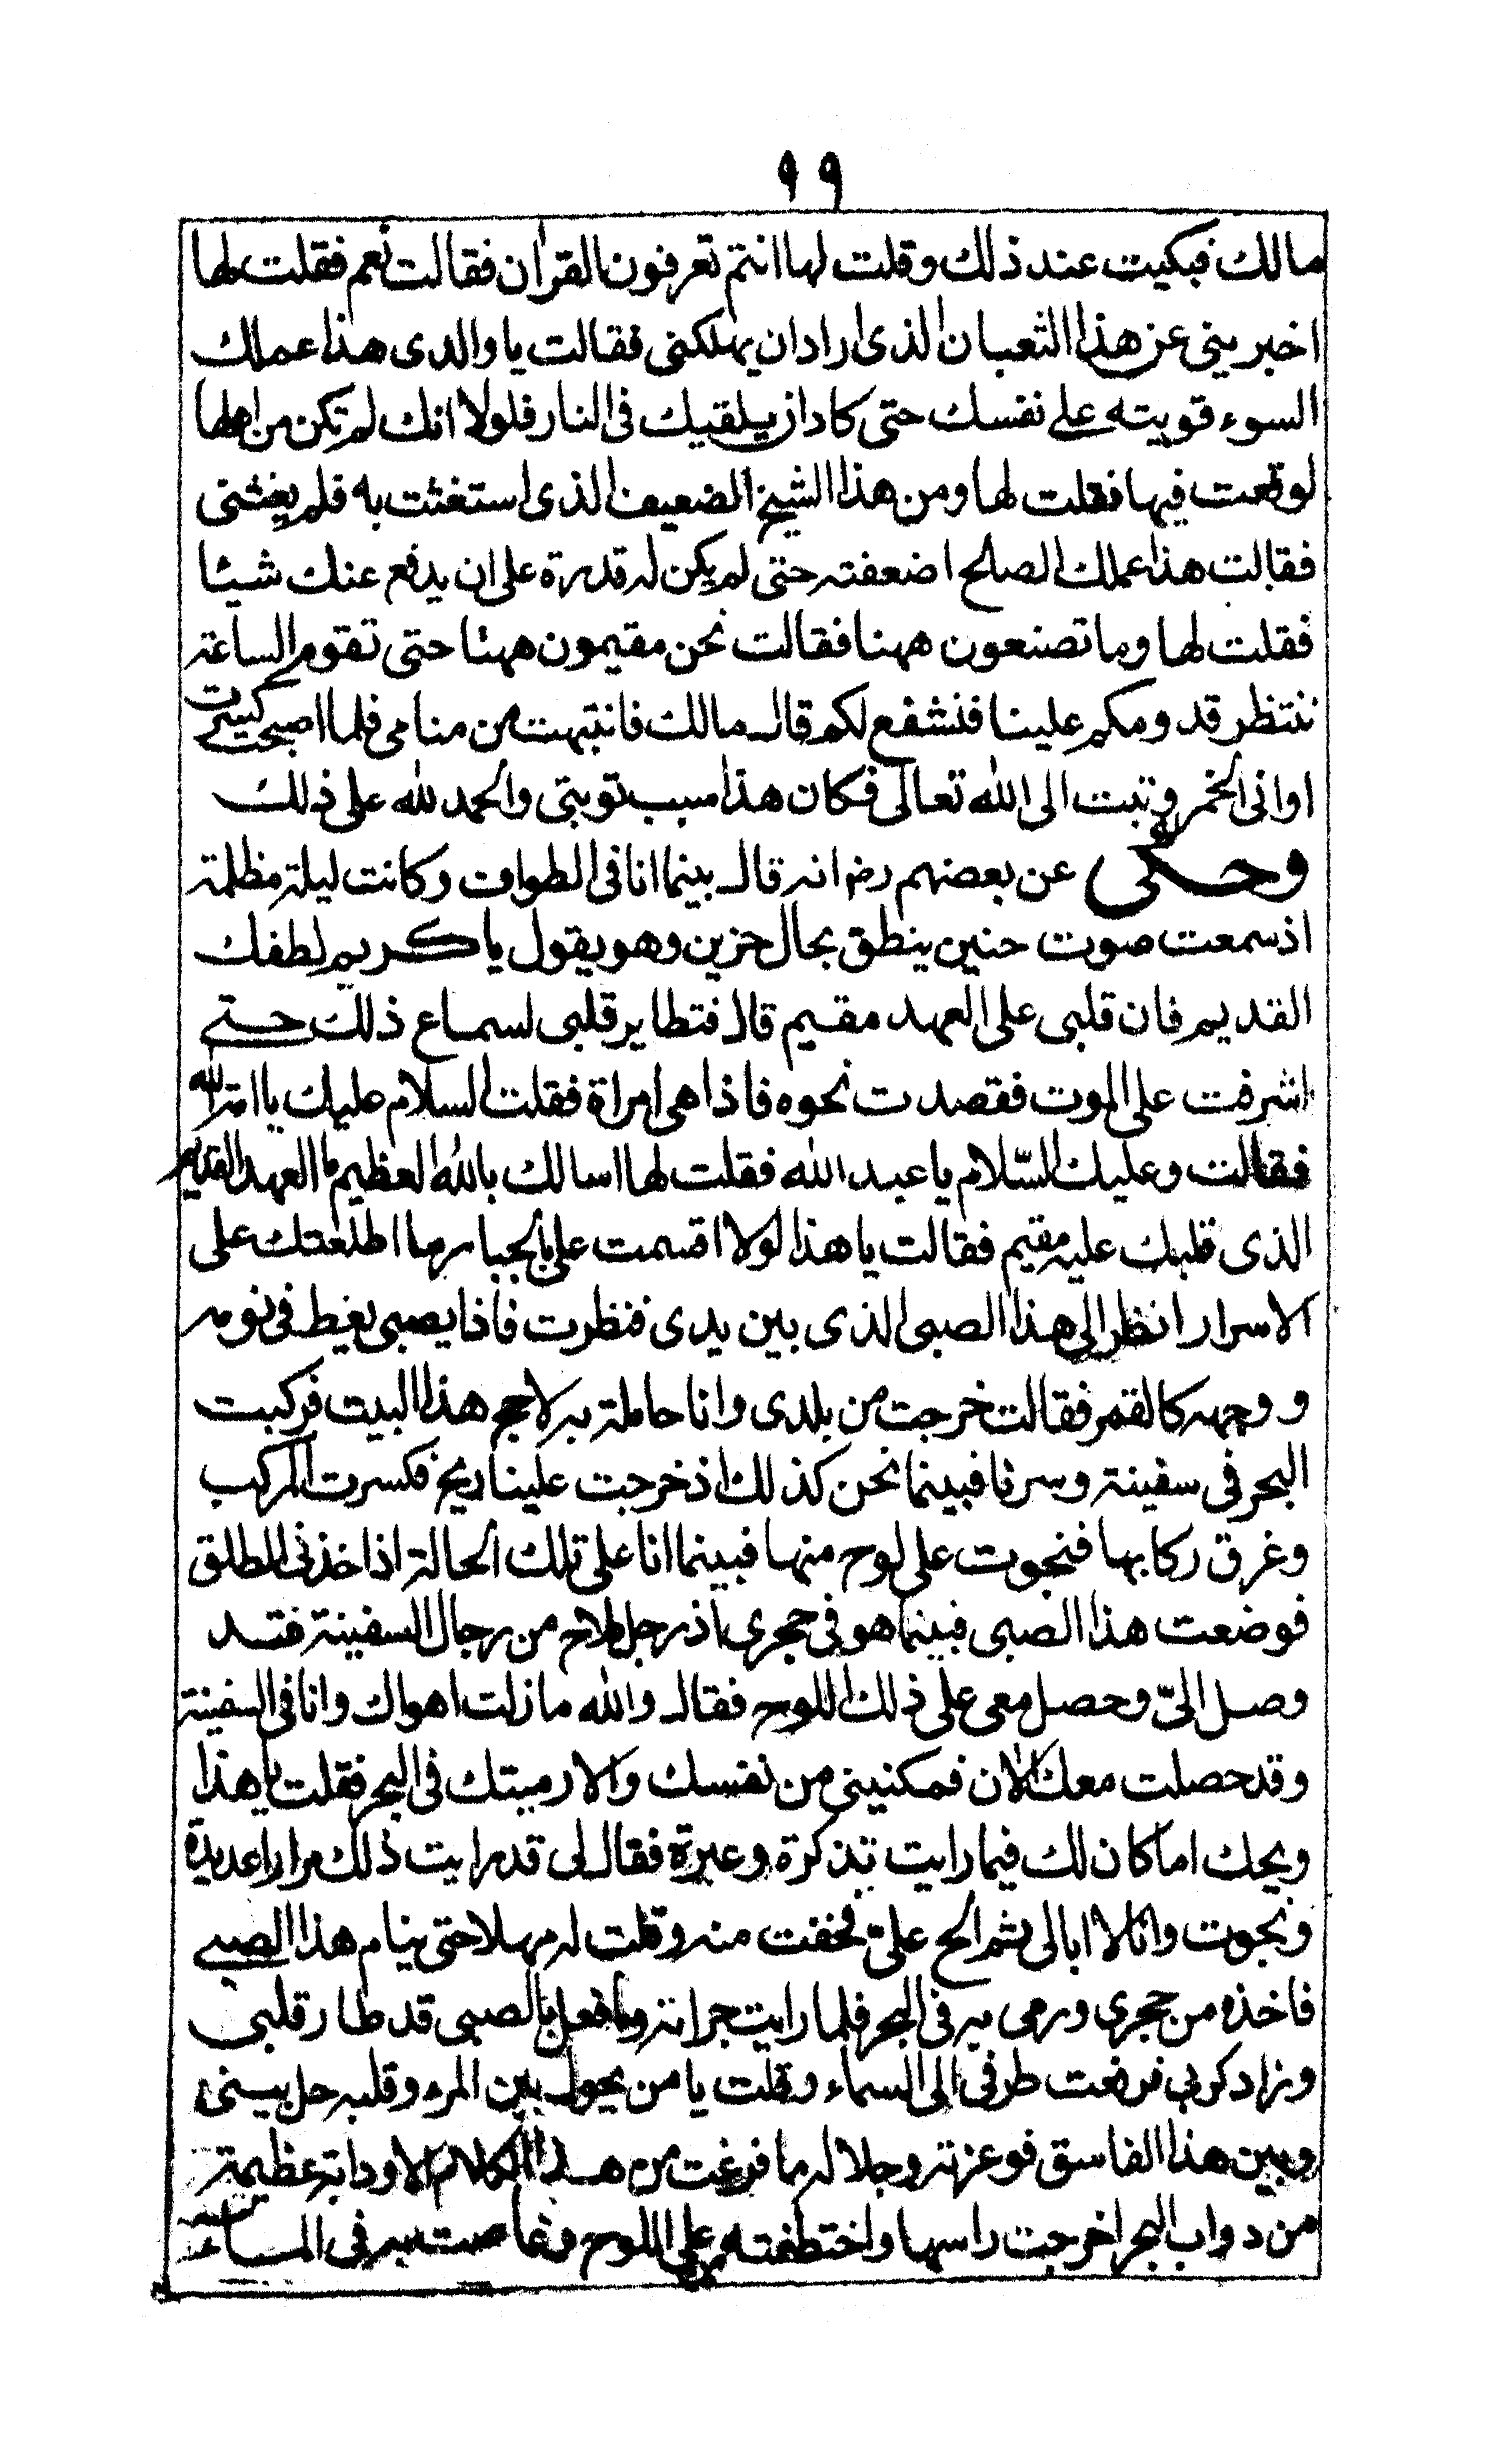 ٩٩
مالك فبكيت عند ذلك وقلت لها انتم تعرفون القرأن فقالت نعم فقلت لها
اخبريني عن هذا الثعبان الذي اراد ان يهلكني فقالت يا والدي هذا عملك
السوء قويته على نفسك حتى كاد ان يلقيك في النار فلولا انك لم تكن من اهلها
لوقعت فيها فقلت لها ومن هذا الشيخ الضعيف الذي استغثت به فلم يغثني
فقالت هذا عملك الصلح اضعفته حتى لم يكن له قدرة على ان يدفع عنك شيئا
فقلت لها وما تصنعون ههنا فقالت نحن مقيمون ههنا حتى تقوم الساعة
ننتظر قدومكم علينا فنشفع لكم قال مالك فانتبهت من منامي فلما اصبحت كسرت
اواني الخمر وتبت الى الله تعالى فكان هذا سبب توبتي والحمد لله على ذلك
وحكى عن بعضهم رضه انه قال بينما انا في الطواف وكانت ليلة مظلمة
اذ سمعت صوت حنين ينطق بحال حزين وهو يقول يا كريم لطفك
القديم فان قلبي على العهد مقيم قال فتطاير قلبي لسماع ذلك حتى
اشرفت على الموت فقصدت نحوه فاذا هي امراة فقلت السلام عليك يا امة الله
فقالت وعليك السّلام يا عبد الله فقلت لها اسالك بالله العظيم ما العهد القديم
الذي قلبك عليه مقيم فقالت يا هذا لولا اقسمت علي بالجبار ما اطلعتك على
الاسرار انظر الى هذا الصبي الذي بين يدي فنظرت فاذا بصبي يغط في نومه
ووجهه كالقمر فقالت خرجت من بلدي وانا حاملة به لاحج هذا البيت فركبت
البحر في سفينة وسرنا فبينما نحن كذلك اذ خرجت علينا ريح فكسرت المركب
وغرق ركابها فنجوت على لوح منها فبينما انا على تلك الحالة اذ اخذني الطلق
فوضعت هذا الصبي فبينما هو في حجري اذ رجل ملاح من رجال السفينة قد
وصل اليّ وحصل معي على ذلك اللوح فقال والله ما زلت اهواك وانا في السفينة
وقد حصلت معك الأن فمكنيني من نفسك والا رميتك في البحر فقلت يا هذا
ويحك اما كان لك فيما رايت تذكرة وعبرة فقال لي قد رايت ذلك مرارا عديدة
ونجوت وانا لا ابالي ثم الح عليّ فخفت منه وقلت له مهلا حتى ينام هذا الصبي
فاخذه من حجري ورمى به في البحر فلما رايت جراته وما فعل بالصبي قد طار قلبي
وزاد كربي فرفعت طرفي الى السماء وقلت يا من يحول بين المرء وقلبه حل بيني
وبين هذا الفاسق فوعزته وجلاله ما فرغت من هذا الكلام الا ودابة عظيمة
من دواب البحر اخرجت راسها واختطفته من على اللوح وغاصت به في الماء